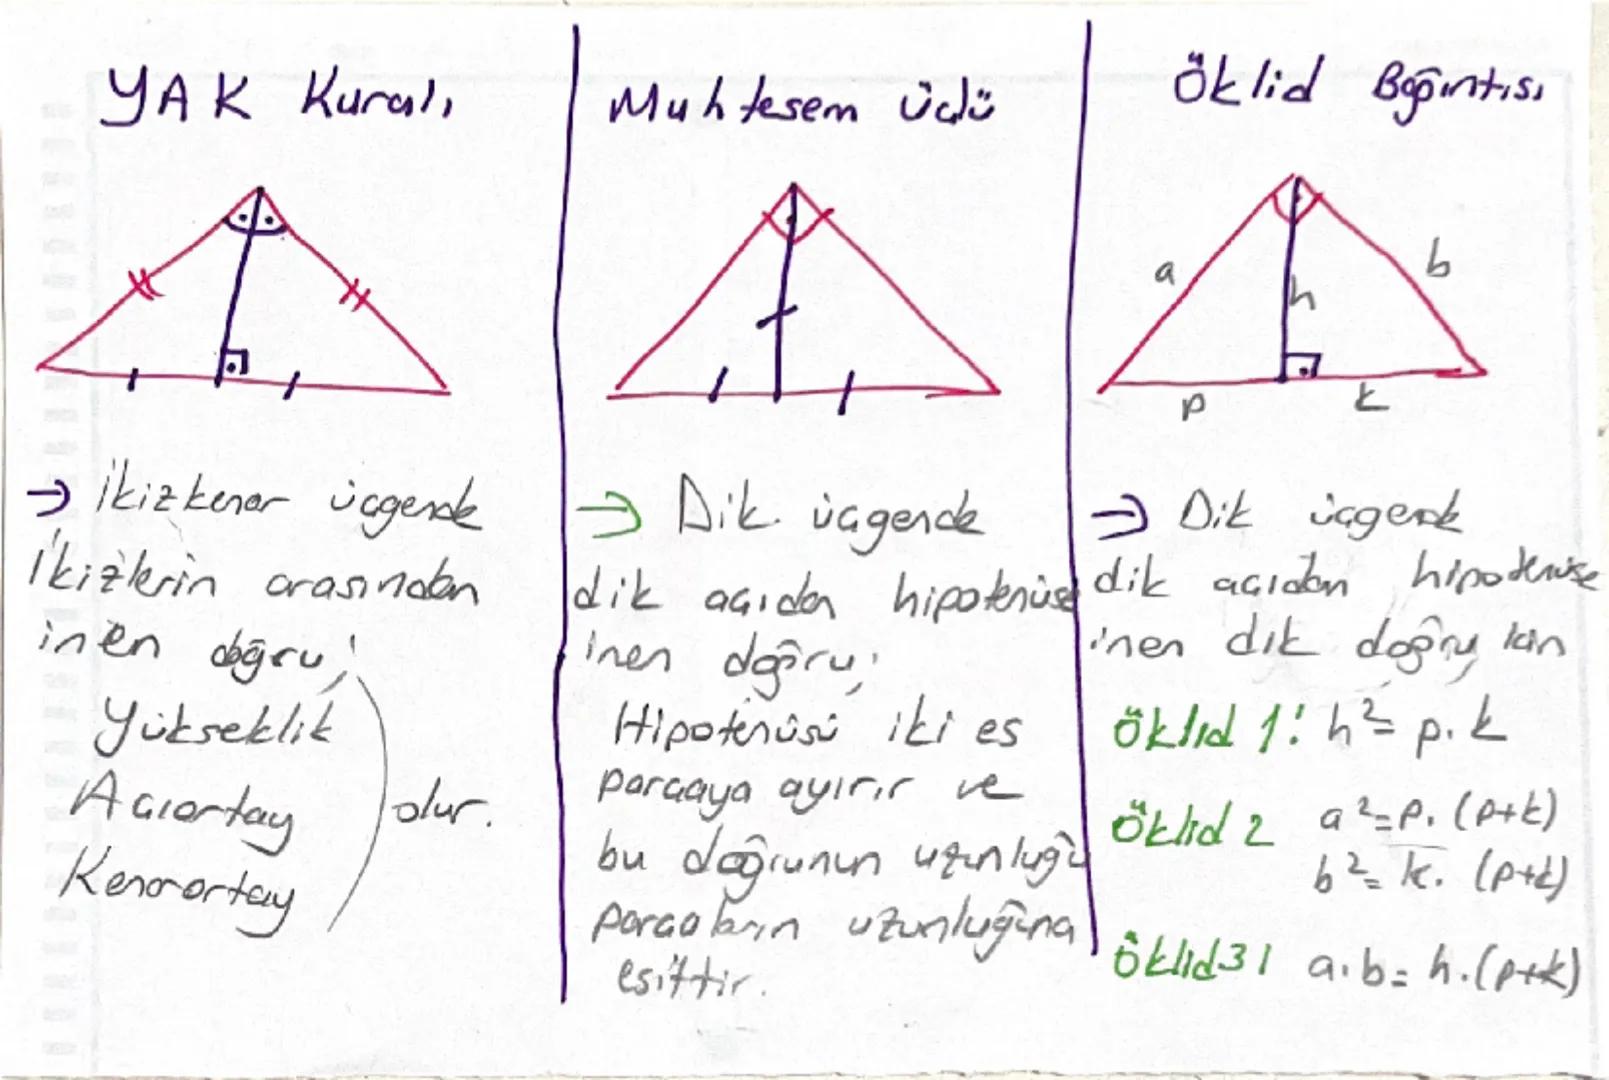 YAK Kuralı
İkizkenar üçgende
İkizlerin arasından
inen doğru;
Yükseklik
Açıortay
Kenarortay
olur.
Muhteşem Üçlü
Dik üçgende
dik açıdan hipotenüse
inen doğru;
Hipotenüsü iki eş
parçaya ayırır ve
bu doğrunun uzunluğu
parçaların uzunluğuna
eşittir.
Öklid Bağıntısı
a
b
h
p
k
Dik üçgende
dik açıdan hipotenüse
inen dik doğru için
Öklid 1: h² = p.k
Öklid 2 a² = p.(p+k)
b² = k.(p+k)
Öklid 3: a.b = h.(p+k)